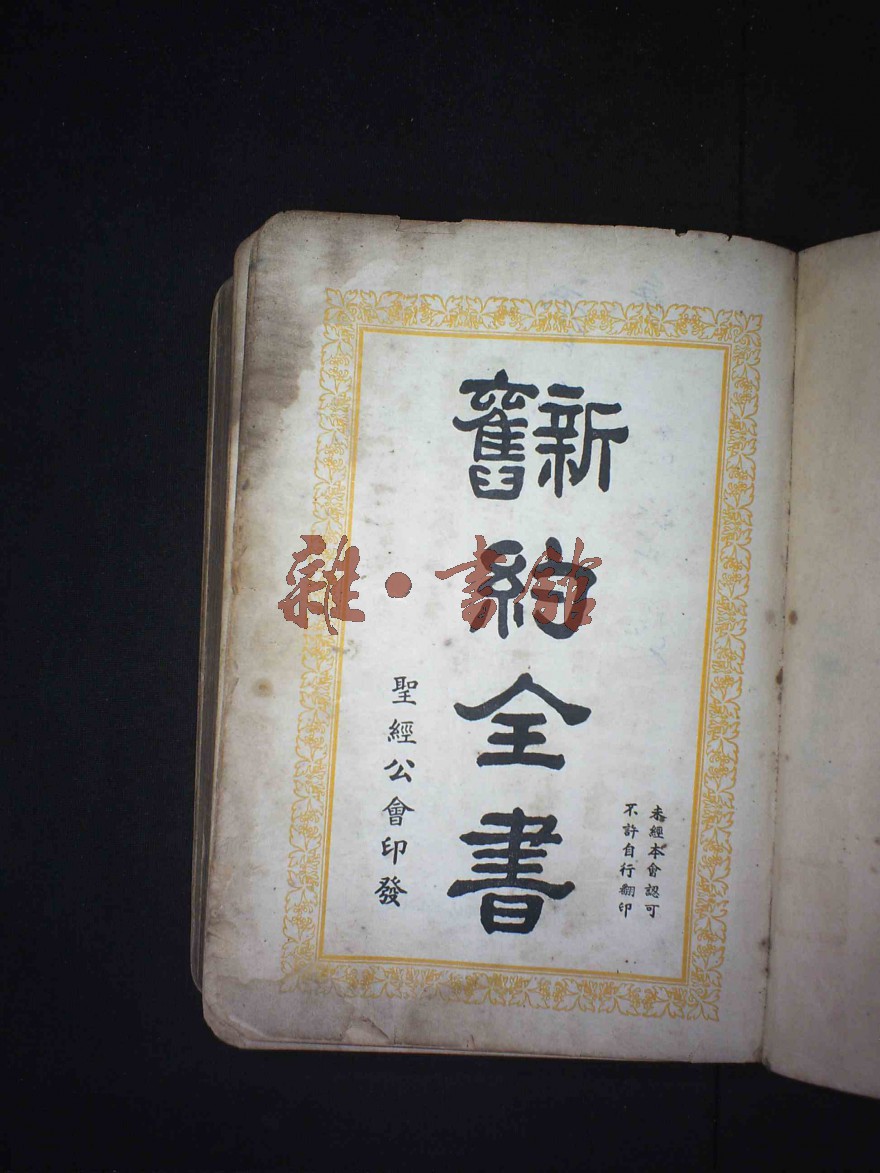 未經本會認可
不許自行翻印
新舊約全書
聖經公會印發
雜·書館